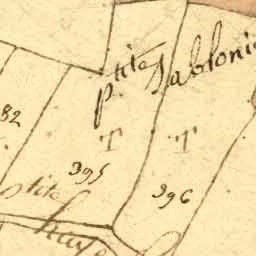 p.tite Sabloni
82
T
T
395
396
tite